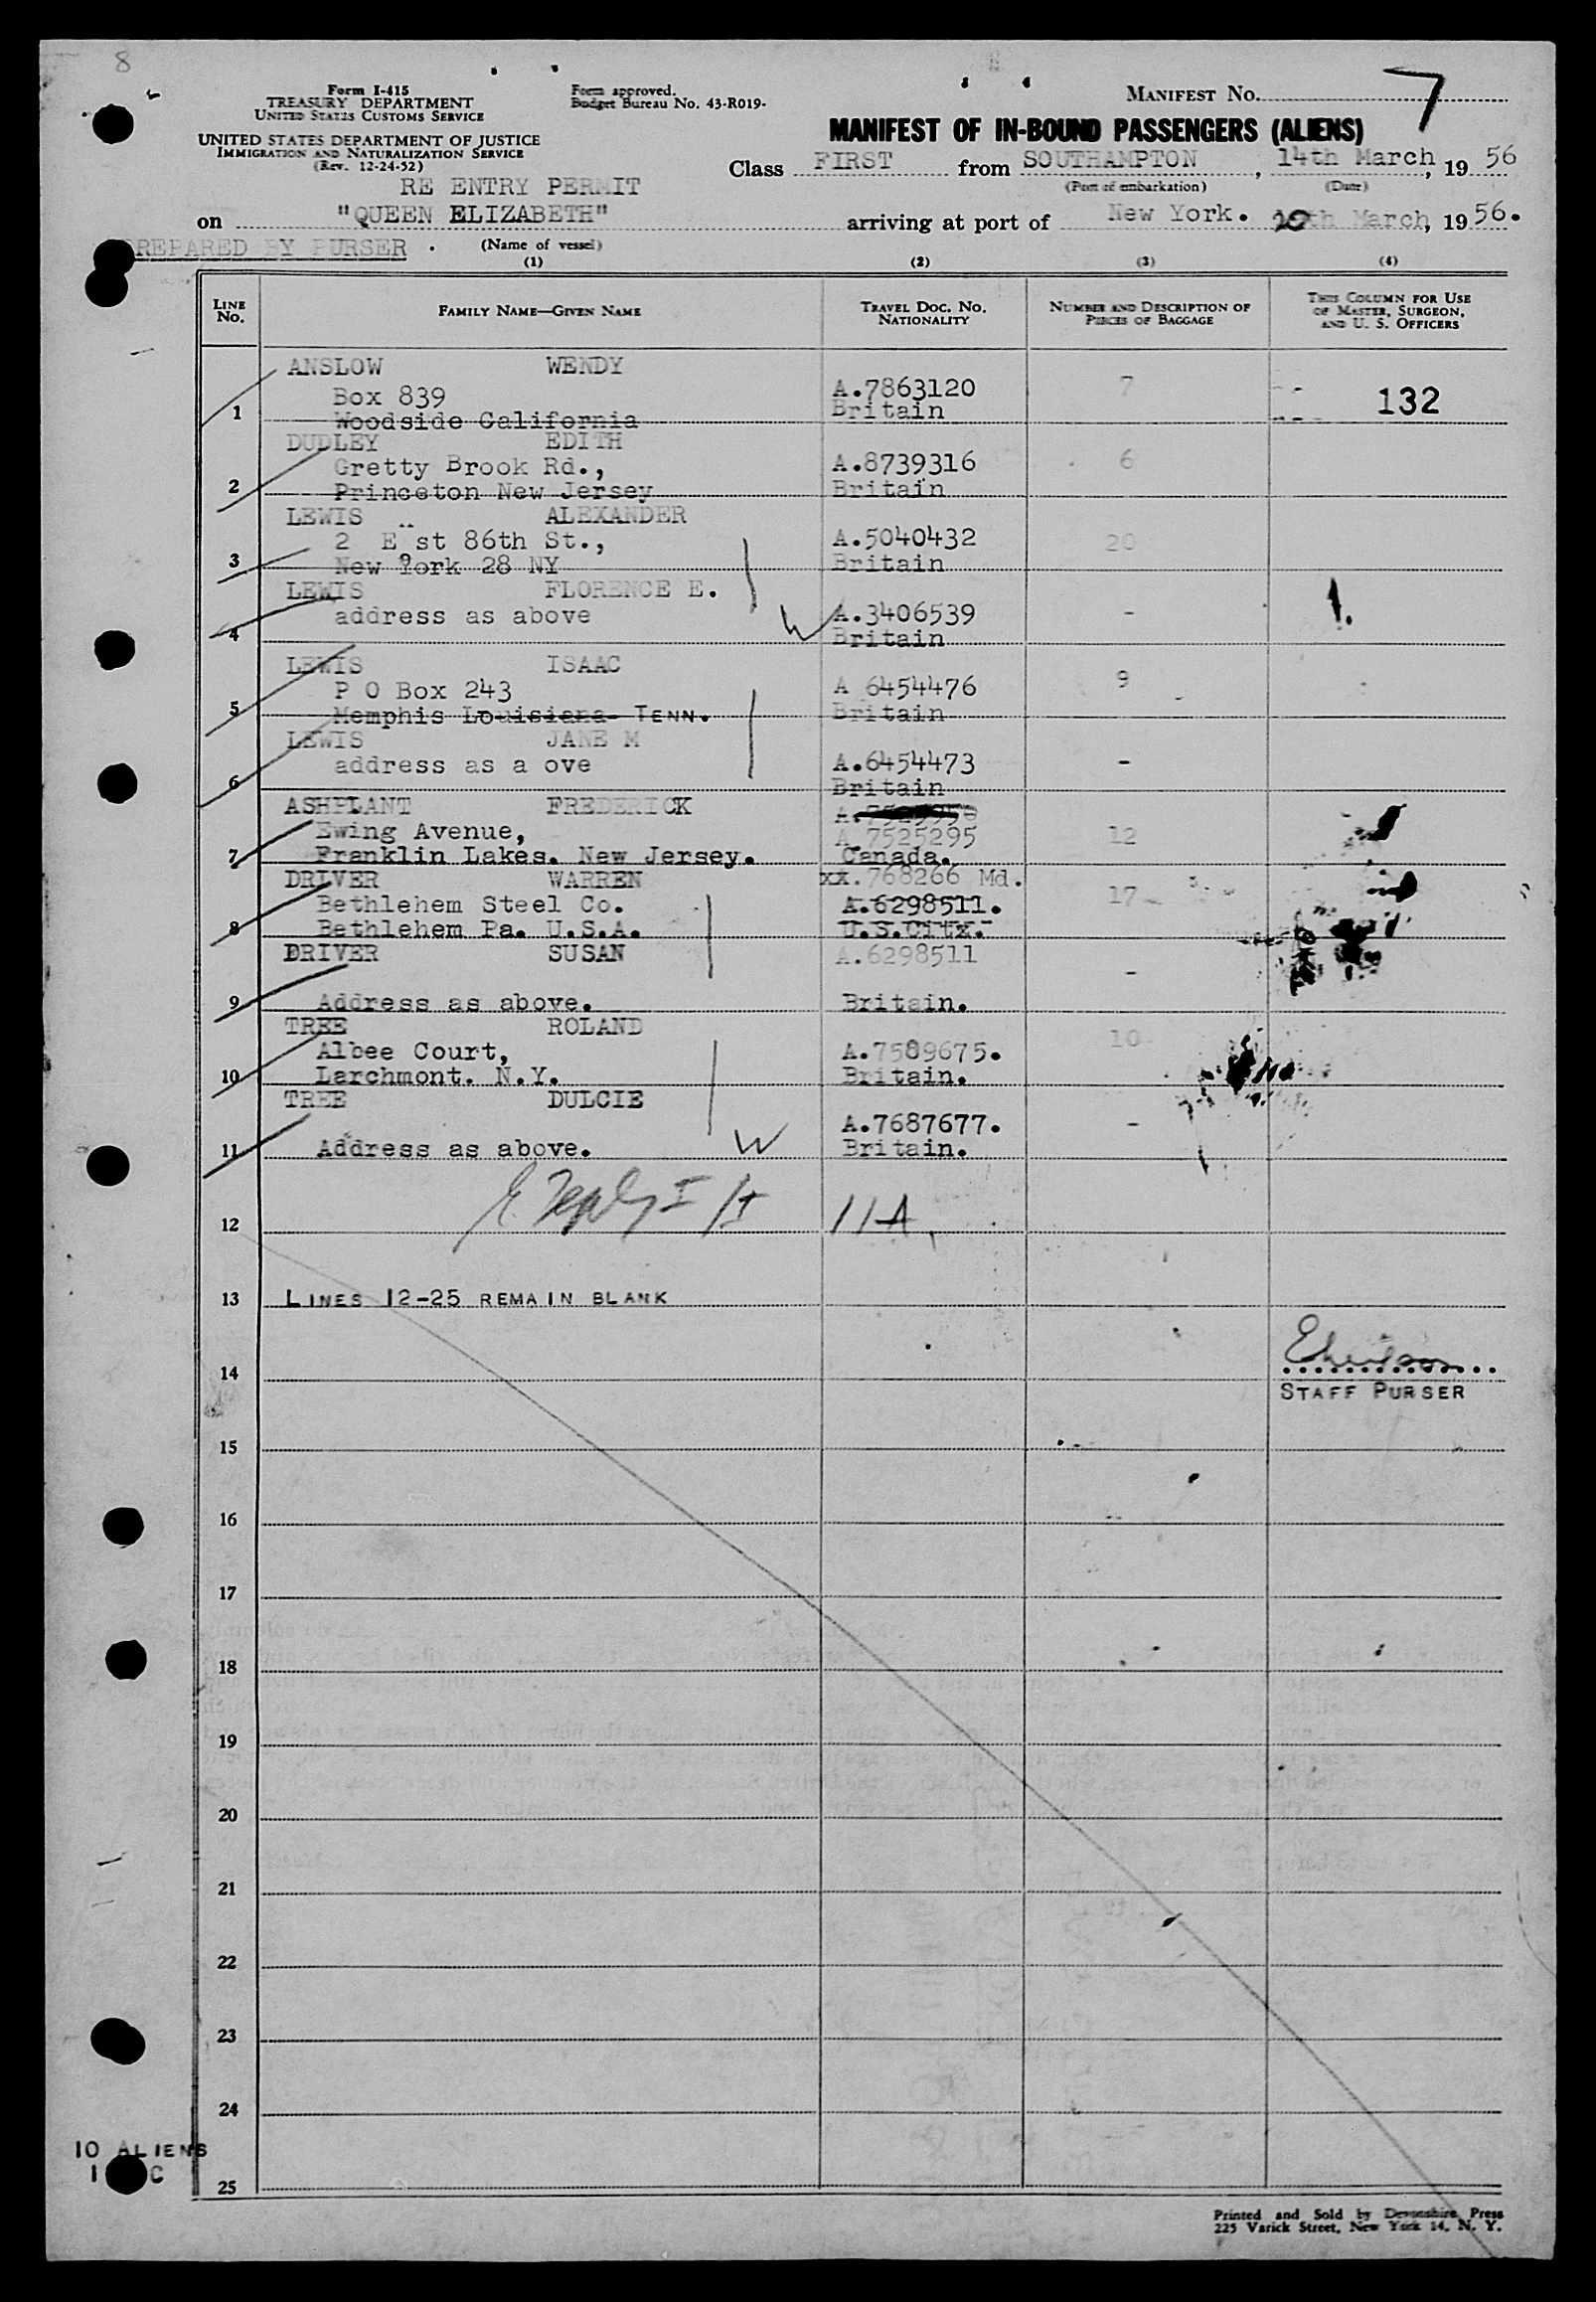 8
Form I-415
TREASURY DEPARTMENT
UNITED STATES CUSTOMS SERVICE
Form approved.
Budget Bureau No. 43-R019-
MANIFEST NO. 7
UNITED STATES DEPARTMENT OF JUSTICE
IMMIGRATION AND NATURALIZATION SERVICE
(Rev. 12-24-52)
MANIFEST OF IN-BOUND PASSENGERS (ALIENS)
Class FIRST from SOUTHAMPTON, 14th March, 19 56
(Port of embarkation) (Date)
RE ENTRY PERMIT
on "QUEEN ELIZABETH" arriving at port of New York. 20th March, 19 56.
PREPARED BY PURSER . (Name of vessel)
(1) (2) (3) (4)
LINE NO. FAMILY NAME—GIVEN NAME TRAVEL DOC. NO. NATIONALITY NUMBER AND DESCRIPTION OF PIECES OF BAGGAGE THIS COLUMN FOR USE OF MASTER, SURGEON, AND U. S. OFFICERS
ANSLOW WENDY
Box 839 A.7863120 7
1 Woodside California Britain 132
DUDLEY EDITH
Gretty Brook Rd., A.8739316 6
2 Princeton New Jersey Britain
LEWIS ALEXANDER
2 E st 86th St., A.5040432 20
3 New York 28 NY Britain
LEWIS FLORENCE E.
address as above W A.3406539 -
4 Britain
LEWIS ISAAC
P O Box 243 A 6454476 9
5 Memphis Louisiana TENN. Britain
LEWIS JANE M
address as a ove A.6454473 -
6 Britain
ASHPLANT FREDERICK
Ewing Avenue, A 7525295 12
7 Franklin Lakes. New Jersey. Canada.
DRIVER WARREN xx.768266 Md.
Bethlehem Steel Co. A.6298511. 17
8 Bethlehem Pa. U.S.A. U.S.Citx.
DRIVER SUSAN A.6298511
-
9 Address as above. Britain.
TREE ROLAND 10
Albee Court, A.7589675.
10 Larchmont. N.Y. Britain.
TREE DULCIE
A.7687677. -
11 Address as above. W Britain.
12 11A
13 LINES 12-25 REMAIN BLANK
14
STAFF PURSER
15
16
17
18
19
20
21
22
23
24
10 ALIENS
1 C
25
Printed and Sold by Devonshire Press
225 Varick Street, New York 14, N. Y.